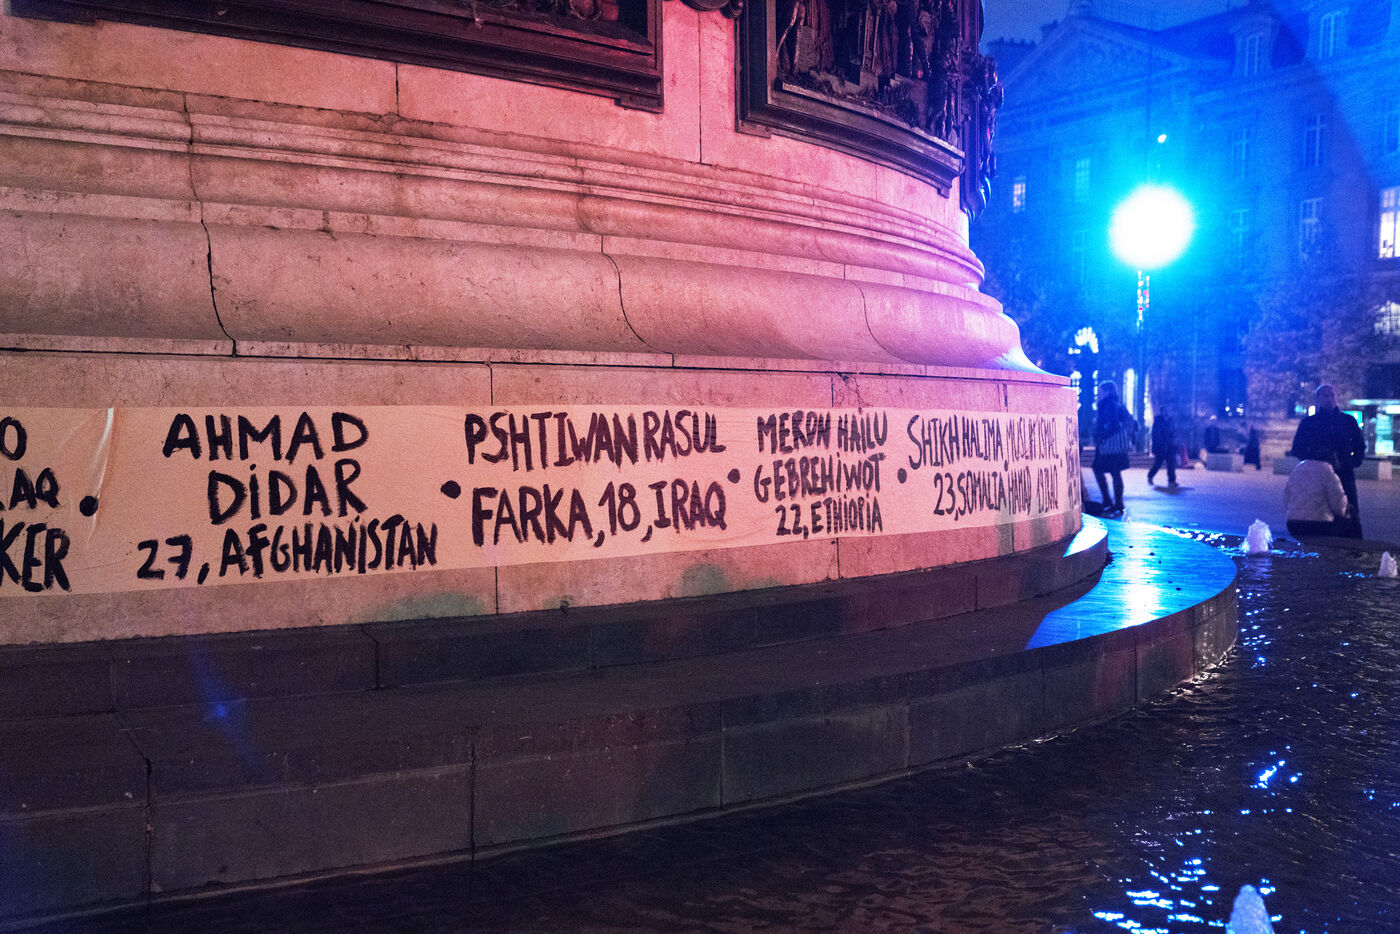 O
AQ
KER
•
AHMAD
DIDAR
27, AFGHANISTAN
•
PSHTIWAN RASUL
FARKA, 18, IRAQ
•
MERON HAILU
GEBREHIWOT
22, ETHIOPIA
•
SHIKH HALIMA
23, SOMALIA